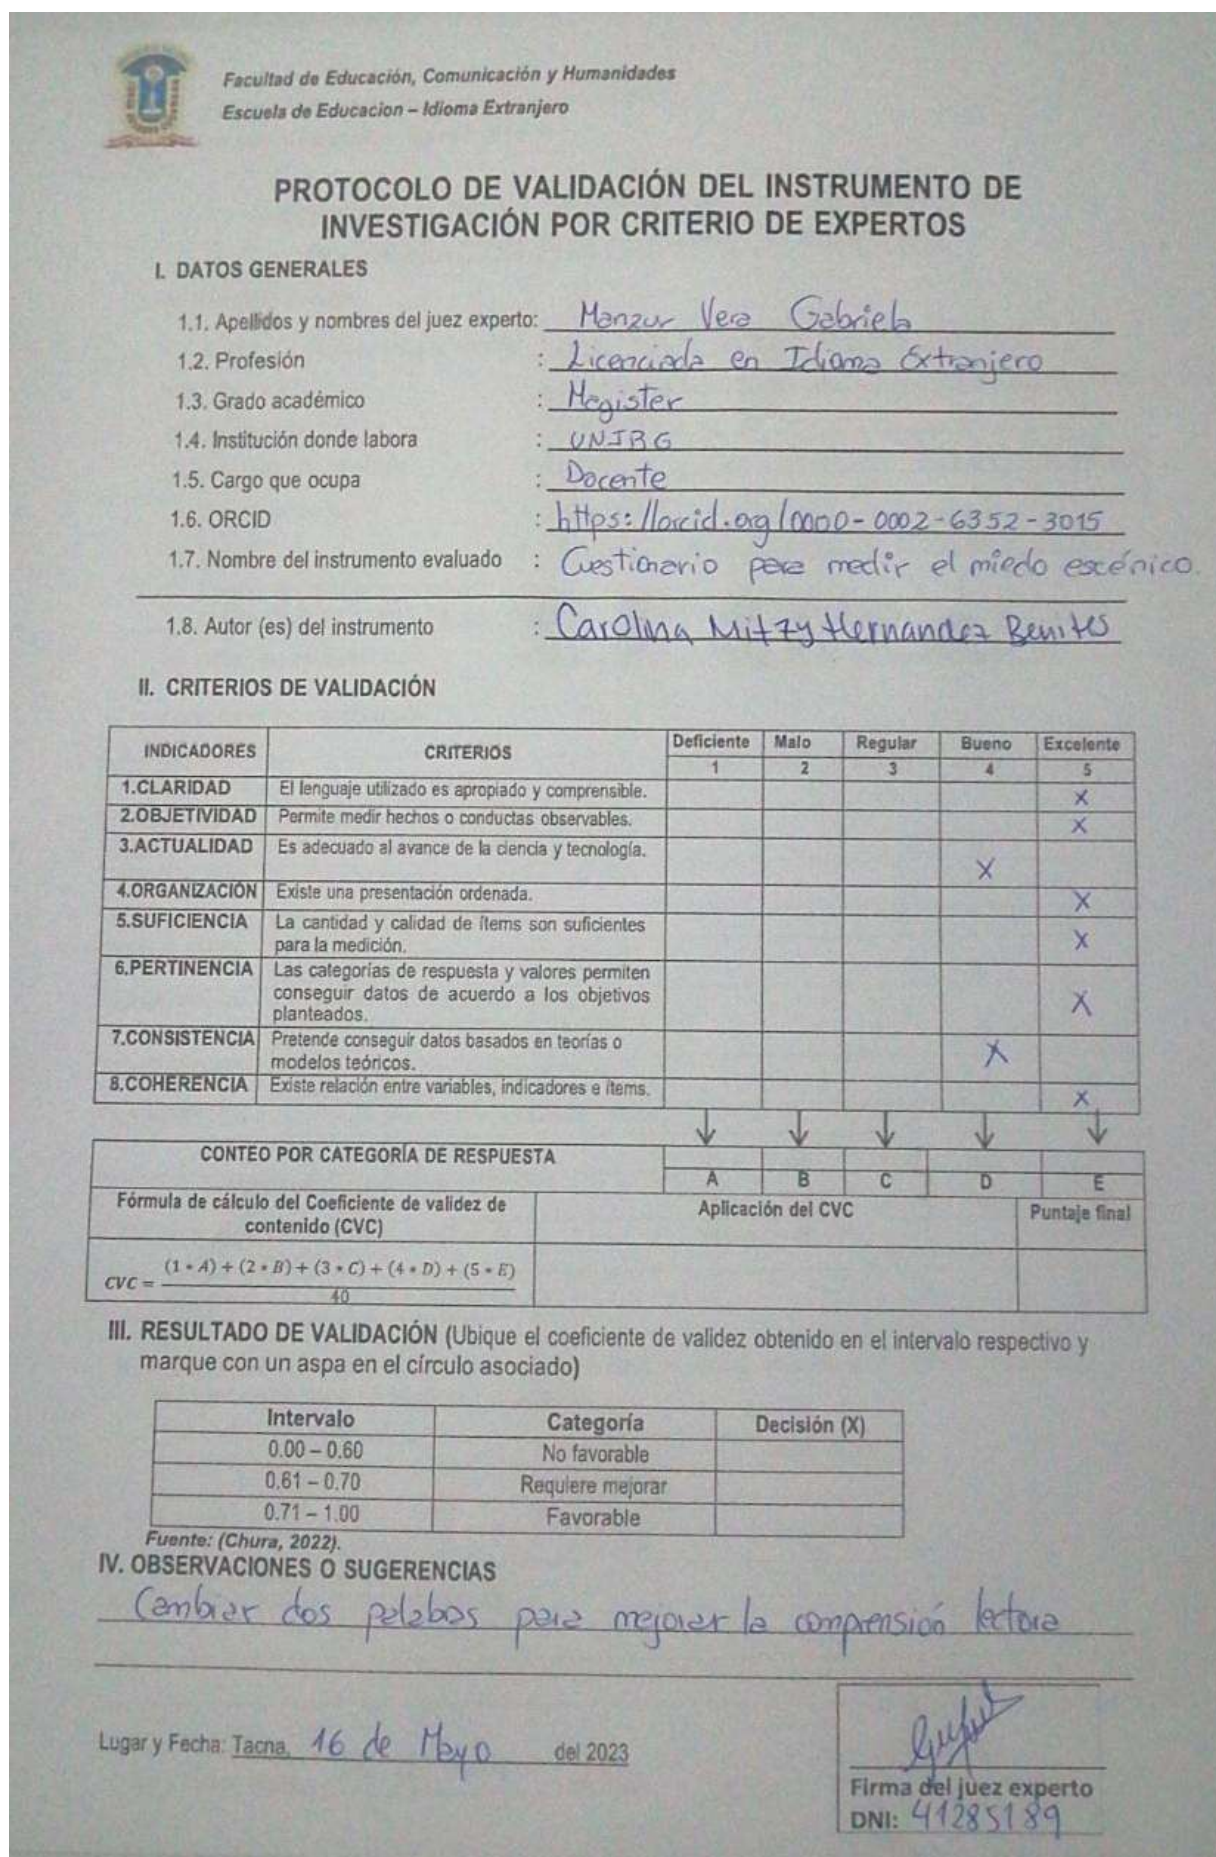 Facultad de Educación, Comunicación y Humanidades
Escuela de Educacion – Idioma Extranjero
PROTOCOLO DE VALIDACIÓN DEL INSTRUMENTO DE
INVESTIGACIÓN POR CRITERIO DE EXPERTOS
I. DATOS GENERALES
1.1. Apellidos y nombres del juez experto: Manzur Vera Gabriela
1.2. Profesión : Licenciada en Idioma Extranjero
1.3. Grado académico : Magister
1.4. Institución donde labora : UNJBG
1.5. Cargo que ocupa : Docente
1.6. ORCID : https://orcid.org/0000-0002-6352-3015
1.7. Nombre del instrumento evaluado : Cuestionario para medir el miedo escénico.
1.8. Autor (es) del instrumento : Carolina Mitzy Hernandez Benites
II. CRITERIOS DE VALIDACIÓN
INDICADORES CRITERIOS Deficiente Malo Regular Bueno Excelente
1 2 3 4 5
1.CLARIDAD El lenguaje utilizado es apropiado y comprensible. X
2.OBJETIVIDAD Permite medir hechos o conductas observables. X
3.ACTUALIDAD Es adecuado al avance de la ciencia y tecnología. X
4.ORGANIZACIÓN Existe una presentación ordenada. X
5.SUFICIENCIA La cantidad y calidad de ítems son suficientes
para la medición. X
6.PERTINENCIA Las categorías de respuesta y valores permiten
conseguir datos de acuerdo a los objetivos
planteados. X
7.CONSISTENCIA Pretende conseguir datos basados en teorías o
modelos teóricos. X
8.COHERENCIA Existe relación entre variables, indicadores e ítems. X
CONTEO POR CATEGORÍA DE RESPUESTA
A B C D E
Fórmula de cálculo del Coeficiente de validez de
contenido (CVC) Aplicación del CVC Puntaje final
CVC = (1 * A) + (2 * B) + (3 * C) + (4 * D) + (5 * E)
40
III. RESULTADO DE VALIDACIÓN (Ubique el coeficiente de validez obtenido en el intervalo respectivo y
marque con un aspa en el círculo asociado)
Intervalo Categoría Decisión (X)
0.00 – 0.60 No favorable
0.61 – 0.70 Requiere mejorar
0.71 – 1.00 Favorable
Fuente: (Chura, 2022).
IV. OBSERVACIONES O SUGERENCIAS
Cambiar dos palabas para mejorar la comprensión lectora
Lugar y Fecha: Tacna, 16 de Mayo del 2023
Firma del juez experto
DNI: 41285189